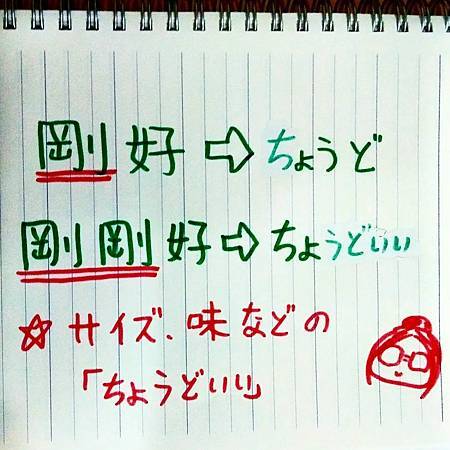 剛好⇨ちょうど
剛剛好⇨ちょうどいい
☆サイズ、味などの
「ちょうどいい」